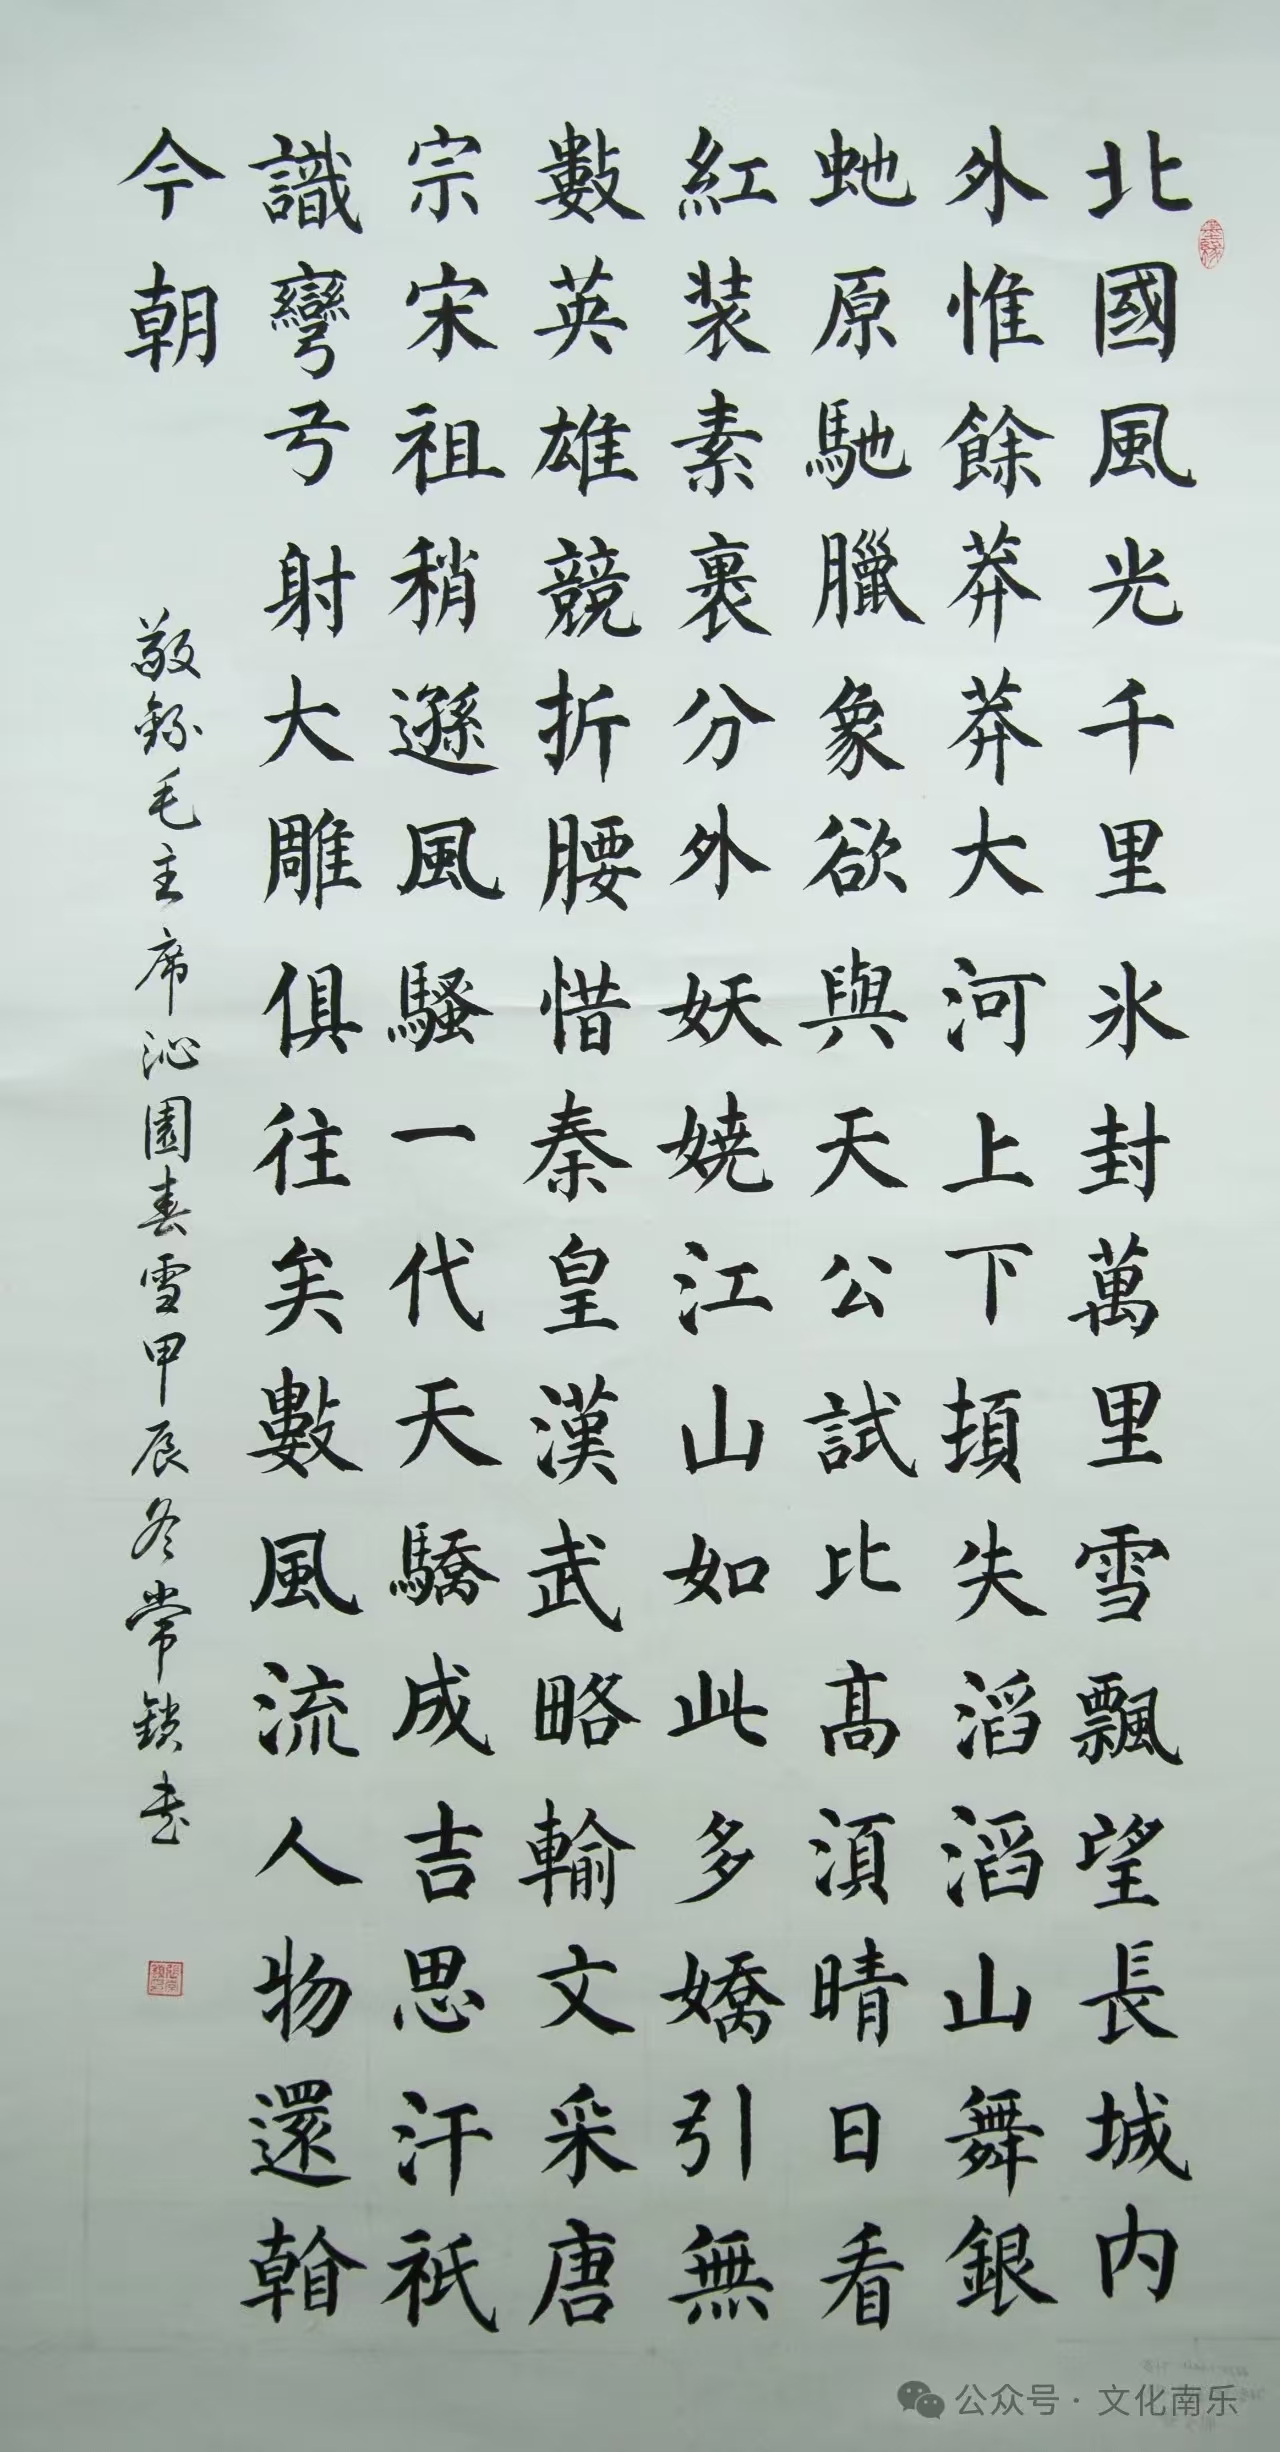 北國風光千里氷封萬里雪飄望長城内
外惟餘莽莽大河上下頓失滔滔山舞銀
虵原馳臘象欲與天公試比高湏晴日看
紅装素裹分外妖嬈江山如此多嬌引無
數英雄競折腰惜秦皇漢武略輸文采唐
宗宋祖稍遜風騷一代天驕成吉思汗祇
識彎弓射大雕俱往矣數風流人物還看
今朝
敬錄毛主席沁園春雪甲辰冬常鎖書
公众号·文化南乐